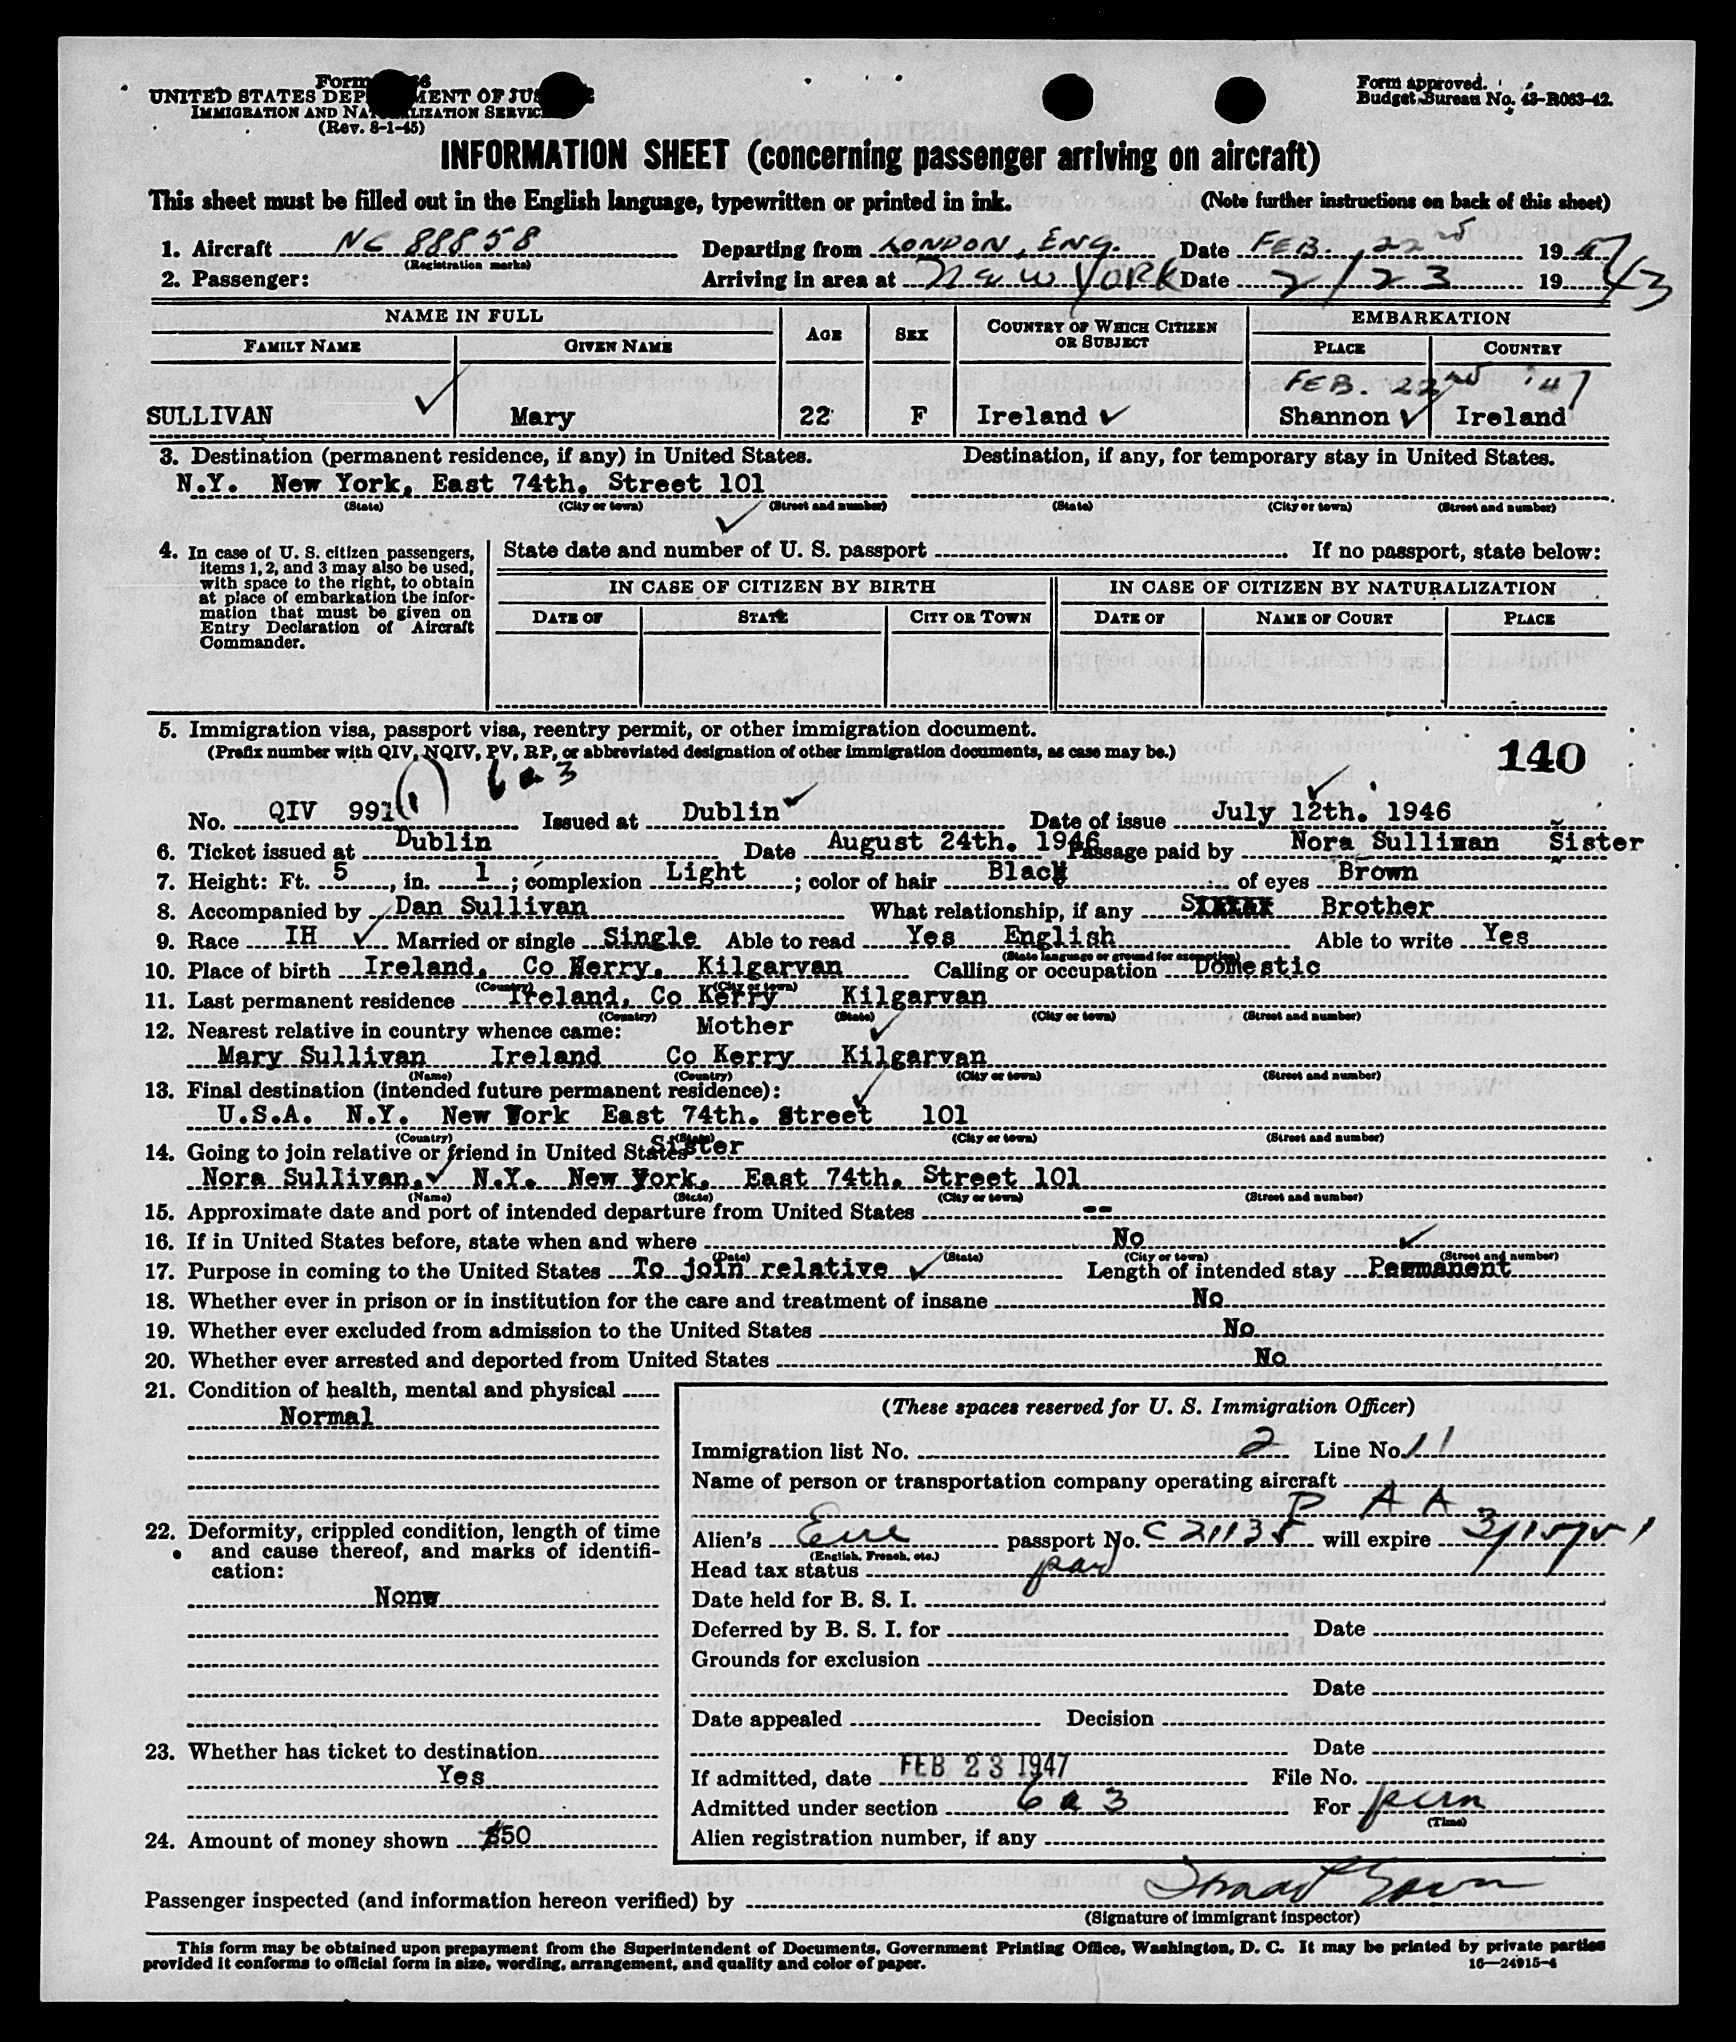 Form
UNITED STATES DEPARTMENT OF JUSTICE
IMMIGRATION AND NATURALIZATION SERVICE
(Rev. 8-1-45)
Form approved.
Budget Bureau No. 43-R063-42.
INFORMATION SHEET (concerning passenger arriving on aircraft)
This sheet must be filled out in the English language, typewritten or printed in ink. (Note further instructions on back of this sheet)
1. Aircraft NC 88858 Departing from LONDON, ENG. Date FEB. 22nd 1947
(Registration marks)
2. Passenger: Arriving in area at New YORK Date 2/23 19
NAME IN FULL AGE SEX COUNTRY OF WHICH CITIZEN OR SUBJECT EMBARKATION
FAMILY NAME GIVEN NAME PLACE COUNTRY
FEB. 22nd '47
SULLIVAN Mary 22 F Ireland Shannon Ireland
3. Destination (permanent residence, if any) in United States. Destination, if any, for temporary stay in United States.
N.Y. New York, East 74th. Street 101
(State) (City or town) (Street and number) (State) (City or town) (Street and number)
4. In case of U. S. citizen passengers, items 1, 2, and 3 may also be used, with space to the right, to obtain at place of embarkation the information that must be given on Entry Declaration of Aircraft Commander.
State date and number of U. S. passport If no passport, state below:
IN CASE OF CITIZEN BY BIRTH IN CASE OF CITIZEN BY NATURALIZATION
DATE OF STATE CITY OR TOWN DATE OF NAME OF COURT PLACE
5. Immigration visa, passport visa, reentry permit, or other immigration document.
(Prefix number with QIV, NQIV, PV, RP, or abbreviated designation of other immigration documents, as case may be.)
140
6 a 3
No. QIV 991 (1) Issued at Dublin Date of issue July 12th. 1946
6. Ticket issued at Dublin Date August 24th. 1946 Passage paid by Nora Sullivan Sister
7. Height: Ft. 5, in. 1; complexion Light; color of hair Black of eyes Brown
8. Accompanied by Dan Sullivan What relationship, if any Brother
9. Race IH Married or single Single Able to read Yes English Able to write Yes
(State language or ground for exemption)
10. Place of birth Ireland, Co Kerry, Kilgarvan Calling or occupation Domestic
(Country) (City or town)
11. Last permanent residence Ireland, Co Kerry Kilgarvan
(Country) (State) (City or town) (Street and number)
12. Nearest relative in country whence came: Mother
Mary Sullivan Ireland Co Kerry Kilgarvan
(Name) (Country) (City or town) (Street and number)
13. Final destination (intended future permanent residence):
U.S.A. N.Y. New York East 74th. Street 101
(Country) (State) (City or town) (Street and number)
14. Going to join relative or friend in United States Sister
Nora Sullivan, N.Y. New York, East 74th. Street 101
(Name) (State) (City or town) (Street and number)
15. Approximate date and port of intended departure from United States --
16. If in United States before, state when and where No
(Date) (State) (City or town) (Street and number)
17. Purpose in coming to the United States To join relative Length of intended stay Permanent
18. Whether ever in prison or in institution for the care and treatment of insane No
19. Whether ever excluded from admission to the United States No
20. Whether ever arrested and deported from United States No
21. Condition of health, mental and physical
Normal
22. Deformity, crippled condition, length of time and cause thereof, and marks of identification:
Nonw
23. Whether has ticket to destination
Yes
24. Amount of money shown $50
(These spaces reserved for U. S. Immigration Officer)
Immigration list No. 2 Line No. 11
Name of person or transportation company operating aircraft
P A A
Alien's Eire passport No. C 21135 will expire 3/15/51
(English, French, etc.)
Head tax status
Date held for B. S. I.
Deferred by B. S. I. for Date
Grounds for exclusion
Date
Date appealed Decision
Date
If admitted, date FEB 23 1947 File No.
Admitted under section 6 a 3 For perm
(Time)
Alien registration number, if any
Passenger inspected (and information hereon verified) by
(Signature of immigrant inspector)
This form may be obtained upon prepayment from the Superintendent of Documents, Government Printing Office, Washington, D. C. It may be printed by private parties
provided it conforms to official form in size, wording, arrangement, and quality and color of paper. 16—24915-4